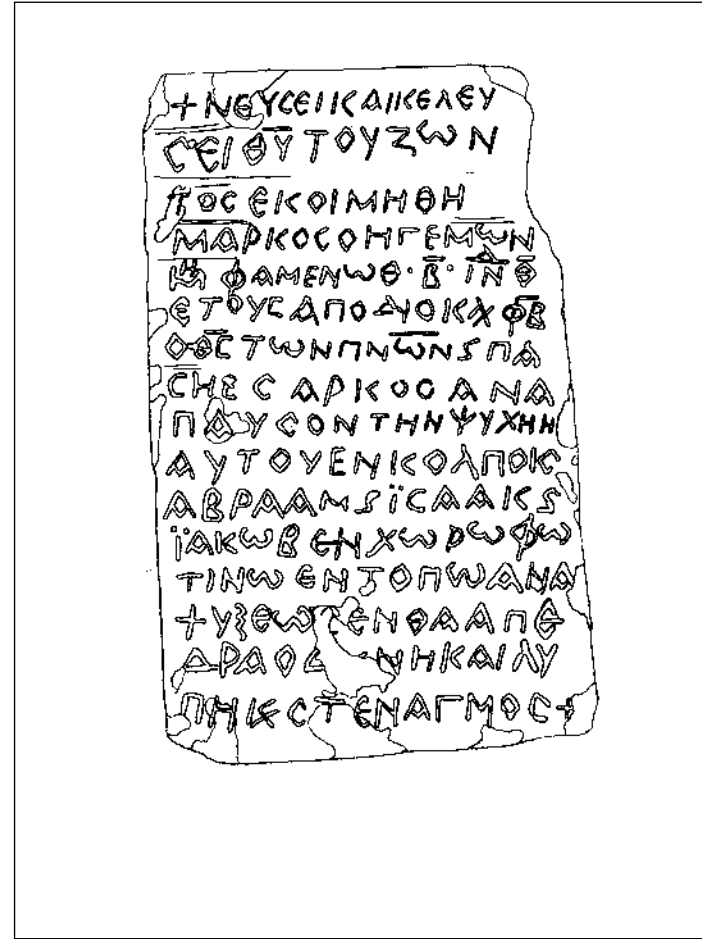 + ΝΕΥϹΕΙΚΑΙΚΕΛΕΥ
ϹΕΙ Θ̅Υ̅ ΤΟΥ ΖΩΝ
ΤΟϹ ΕΚΟΙΜΗΘΗ
ΜΑΡΚΟϹΟΗΓΕΜΩΝ
ΦΑΜΕΝΩΘ · Β̅ · ΙΝΔ Θ̅
ΕΤΟΥϹΑΠΟΔΙΟΚΧΦΒ
ΟΘ̅Ϲ̅ΤΩΝΠΝ̅Ω̅Ν̅SΠΑ
ϹΗϹ ϹΑΡΚΟϹΑΝΑ
ΠΑΥϹΟΝΤΗΝΨΥΧΗΝ
ΑΥΤΟΥΕΝΚΟΛΠΟΙϹ
ΑΒΡΑΑΜSΪϹΑΑΚS
ΪΑΚΩΒΕΝΧΩΡΩΦΩ
ΤΙΝΩΕΝΤΟΠΩΑΝΑ
ΨΥΞΕΩ ΕΝΘΑΑΠΕ
ΔΡΑΟΔ ΝΗΚΑΙΛΥ
ΠΗΚΕϹΤΕΝΑΓΜΟϹ+